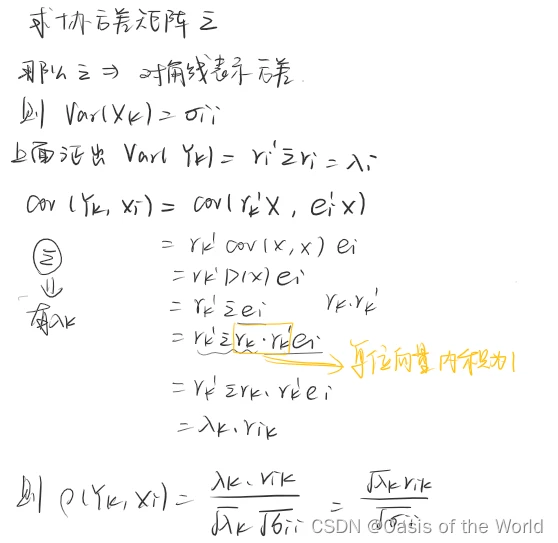 求协方差矩阵 Σ
那么 Σ ⇒ 对角线表示方差.
则 Var(Xk) = σii
上面证出 Var(Yk) = ri'Σri = λi
Cov(Yk, xi) = cov(rk'X, ei'x)
= rk' cov(x, x) ei
= rk' D(x) ei
= rk' Σ ei rk·rk'
= rk' Σ rk·rk' ei
Σ
⇓
有λk
单位向量内积为1
= rk' Σ rk·rk' ei
= λk·rik
则 ρ(Yk, Xi) = λk·rik / √λk √σii = √λk rik / √σii
CSDN @Oasis of the World